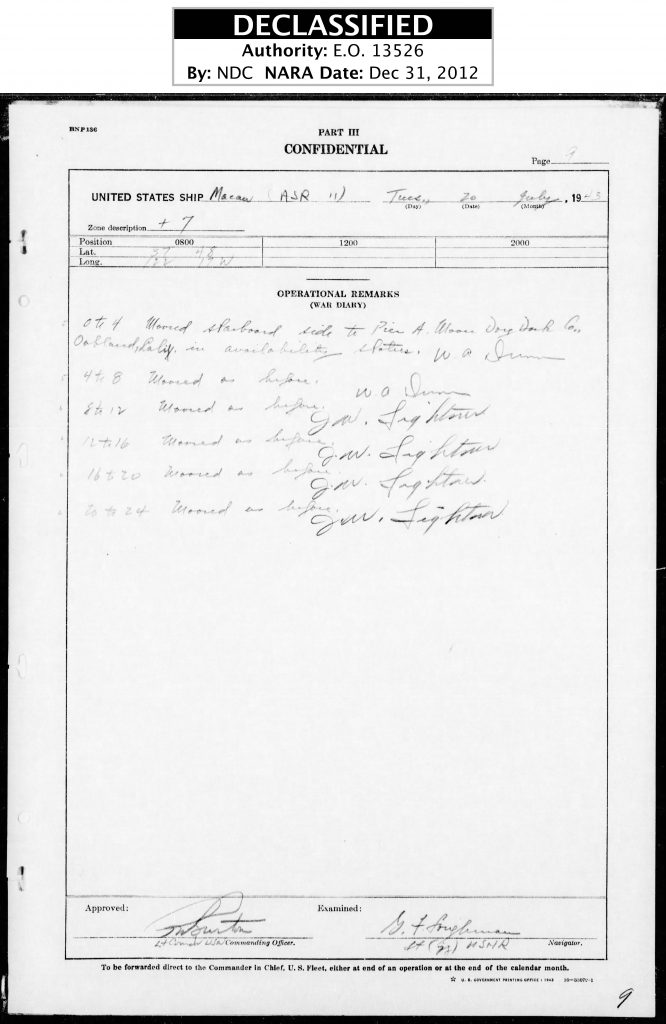 DECLASSIFIED
Authority: E.O. 13526
By: NDC NARA Date: Dec 31, 2012
PART III
CONFIDENTIAL
Page 9
UNITED STATES SHIP Macaw (ASR 11) Tues., 20 July, 1943
(Day) (Date) (Month)
Zone description + 7
Position 0800 1200 2000
Lat. 37 48
Long. 122 W
OPERATIONAL REMARKS
(WAR DIARY)
0 to 4 Moored starboard side to Pier A. Moore Dry Dock Co.,
Oakland, Calif. in availability status. W. A. Dunn
4 to 8 Moored as before.
W A Dunn
8 to 12 Moored as before.
J.W. Lightner
12 to 16 Moored as before.
J.W. Lightner
16 to 20 Moored as before.
J.W. Lightner
20 to 24 Moored as before.
J.W. Lightner
Approved: Examined:
Burton G. F. Loughman
Lt Comdr USN Commanding Officer. Lt (jg) USNR Navigator.
To be forwarded direct to the Commander in Chief, U. S. Fleet, either at end of an operation or at the end of the calendar month.
☆ U. S. GOVERNMENT PRINTING OFFICE : 1942
9